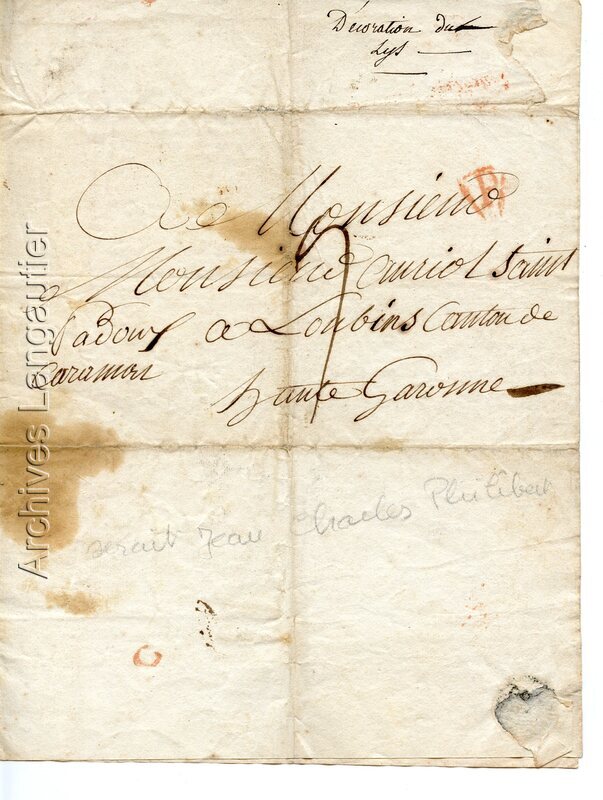 Décoration du
Lys
A Monsieur
Monsieur auriol Saint
Padou a Loubins Canton de
Caraman
haute Garonne
7
P
serait Jean Charles Philibert
Archives Lengautier